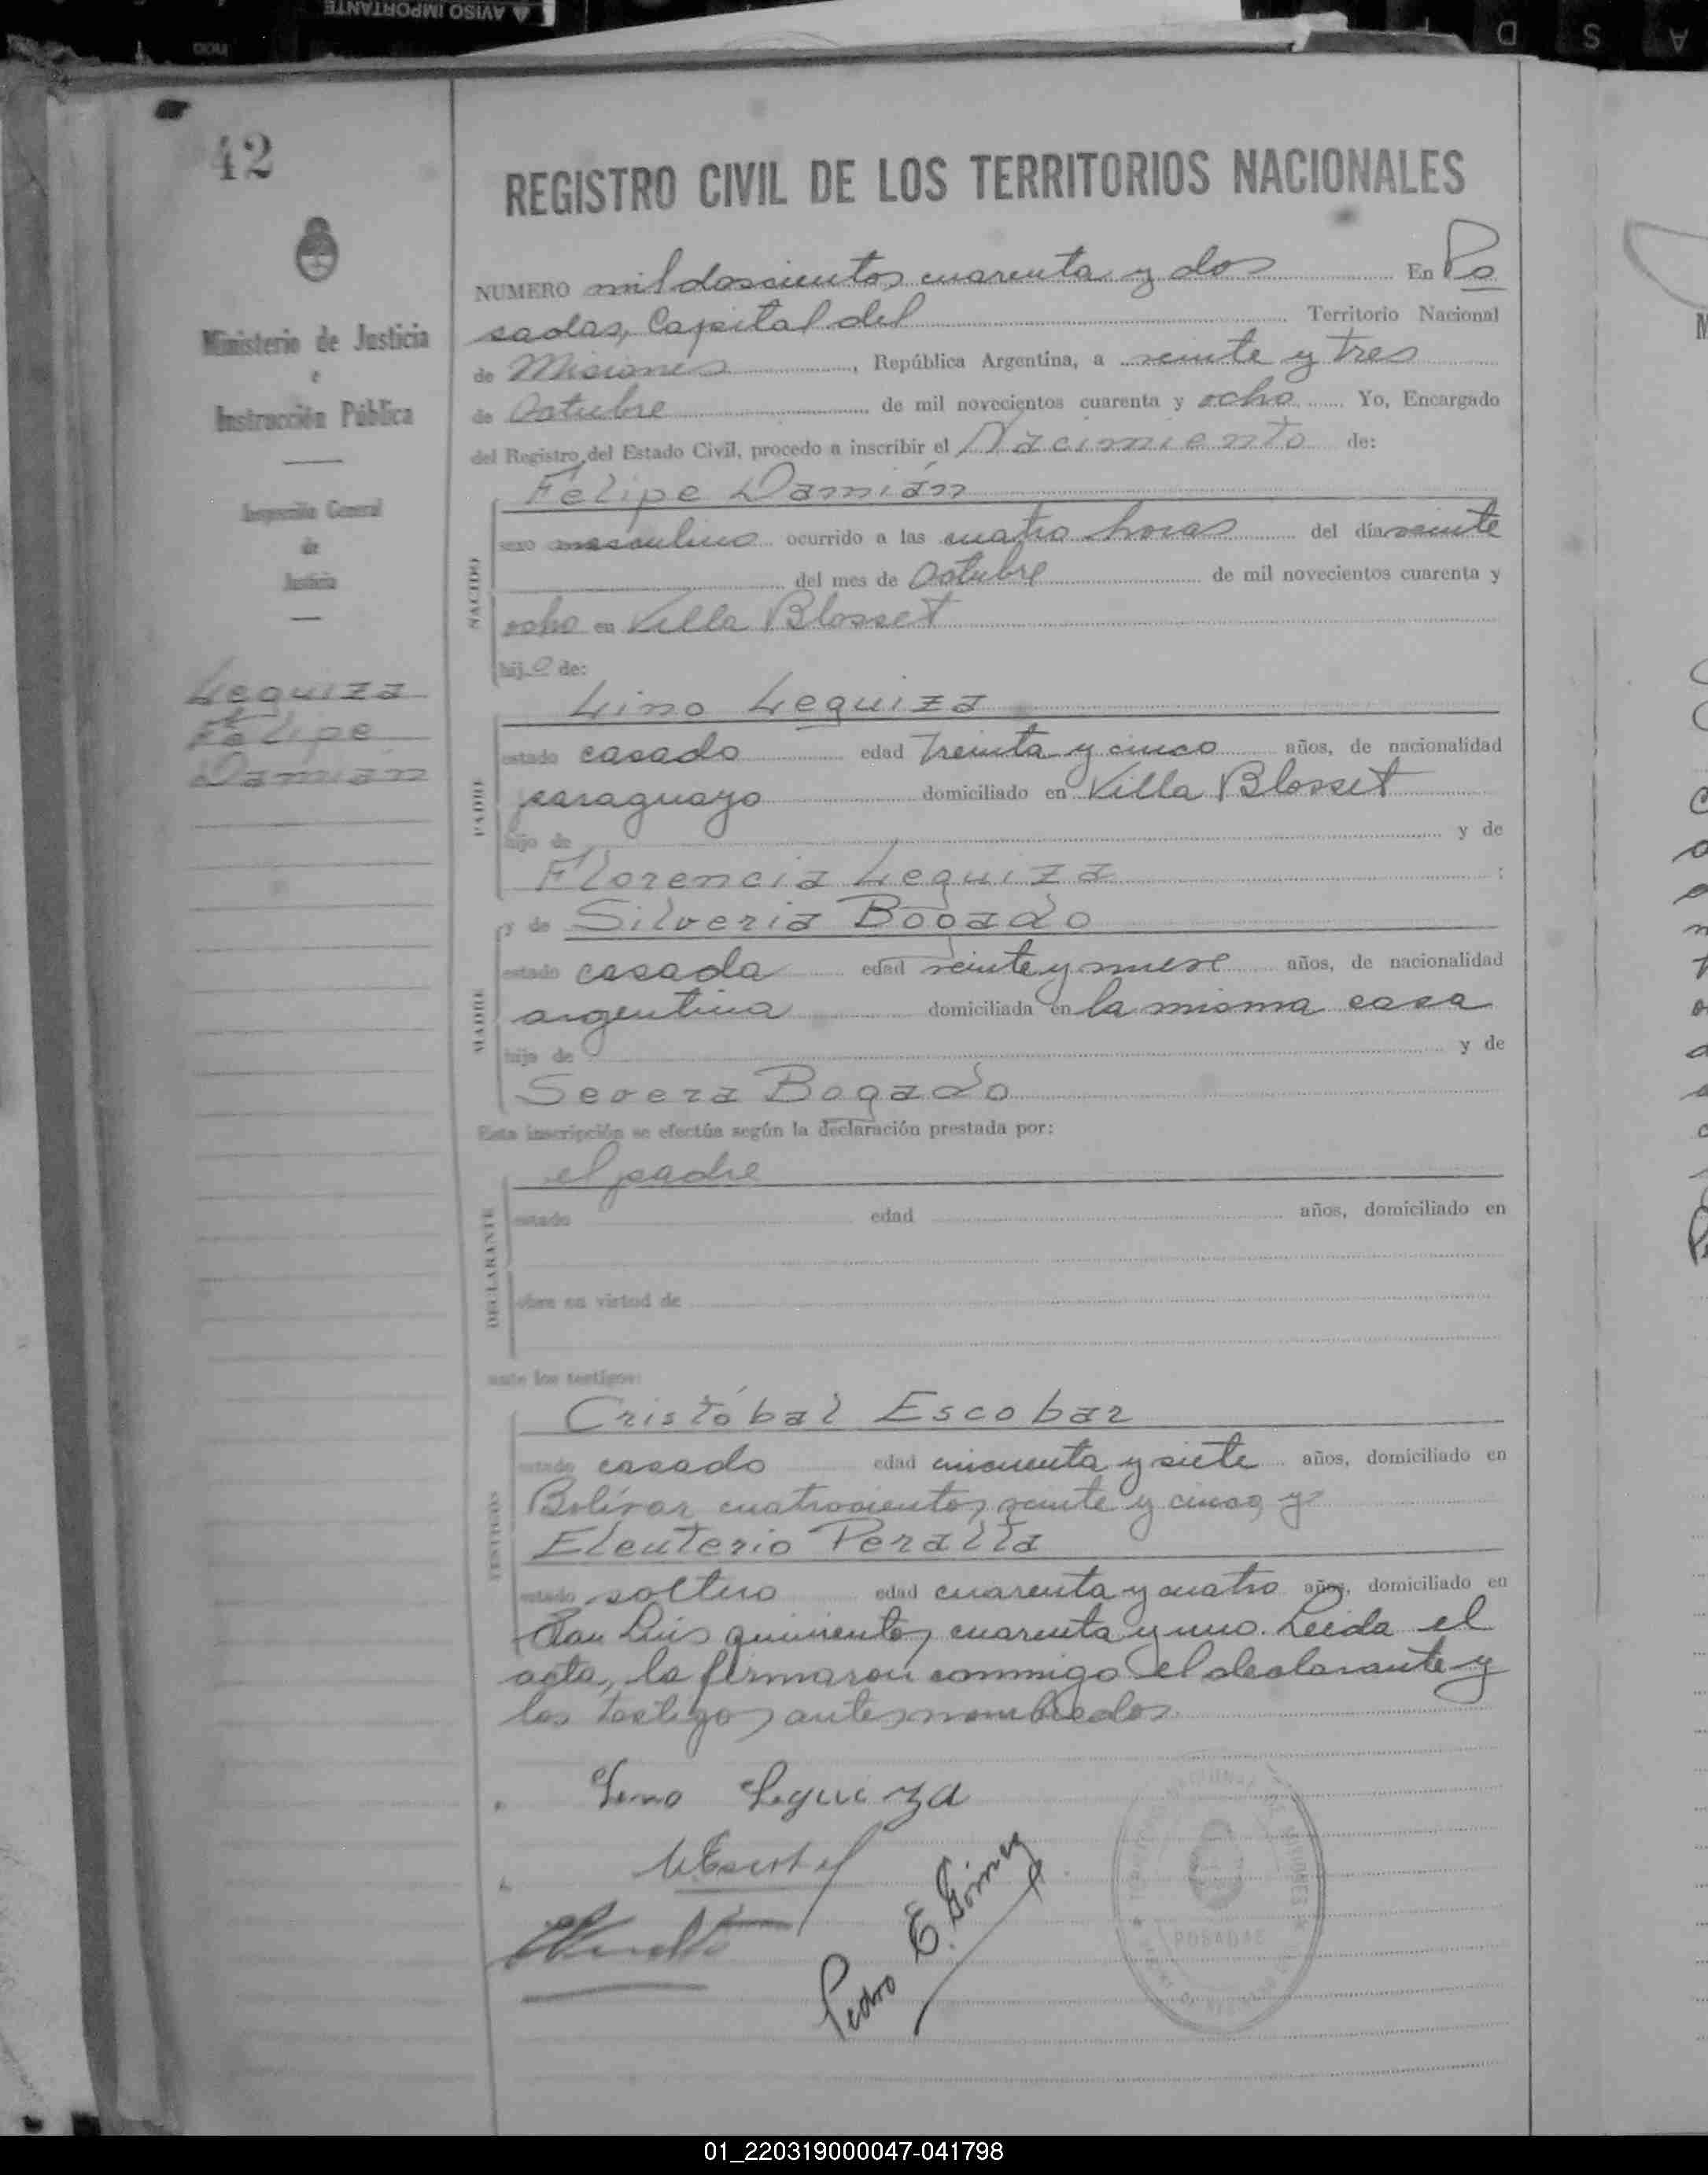 AVISO IMPORTANTE
D
S
A
42
REGISTRO CIVIL DE LOS TERRITORIOS NACIONALES
Ministerio de Justicia
e
Instrucción Pública
Inspección General
de
Justicia
Leguiza
Felipe
Damián
NUMERO mil doscientos cuarenta y dos En Po
sadas, Capital del Territorio Nacional
de Misiones, República Argentina, a veinte y tres
de Octubre de mil novecientos cuarenta y ocho Yo, Encargado
del Registro del Estado Civil, procedo a inscribir el Nacimiento de:
Felipe Damián
NACIDO
sexo masculino ocurrido a las cuatro horas del día veinte
del mes de Octubre de mil novecientos cuarenta y
ocho en Villa Blosset
hijo de:
Lino Leguiza
PADRE
estado casado edad treinta y cinco años, de nacionalidad
paraguayo domiciliado en Villa Blosset
hijo de y de
Florencia Leguiza :
y de Silveria Bogado
MADRE
estado casada edad veinte y nueve años, de nacionalidad
argentina domiciliada en la misma casa
hija de y de
Severa Bogado
Esta inscripción se efectúa según la declaración prestada por:
el padre
DECLARANTE
estado edad años, domiciliado en
obra en virtud de
ante los testigos:
Cristóbal Escobar
TESTIGOS
estado casado edad cincuenta y siete años, domiciliado en
Bolívar cuatrocientos veinte y cinco, y
Eleuterio Peralta
estado soltero edad cuarenta y cuatro años, domiciliado en
San Luis quinientos cuarenta y uno. Leida el
acta, la firmaron conmigo el declarante y
los testigos antes nombrados.
Lino Leguiza
Pedro E. Gómez
POSADAS
01_220319000047-041798